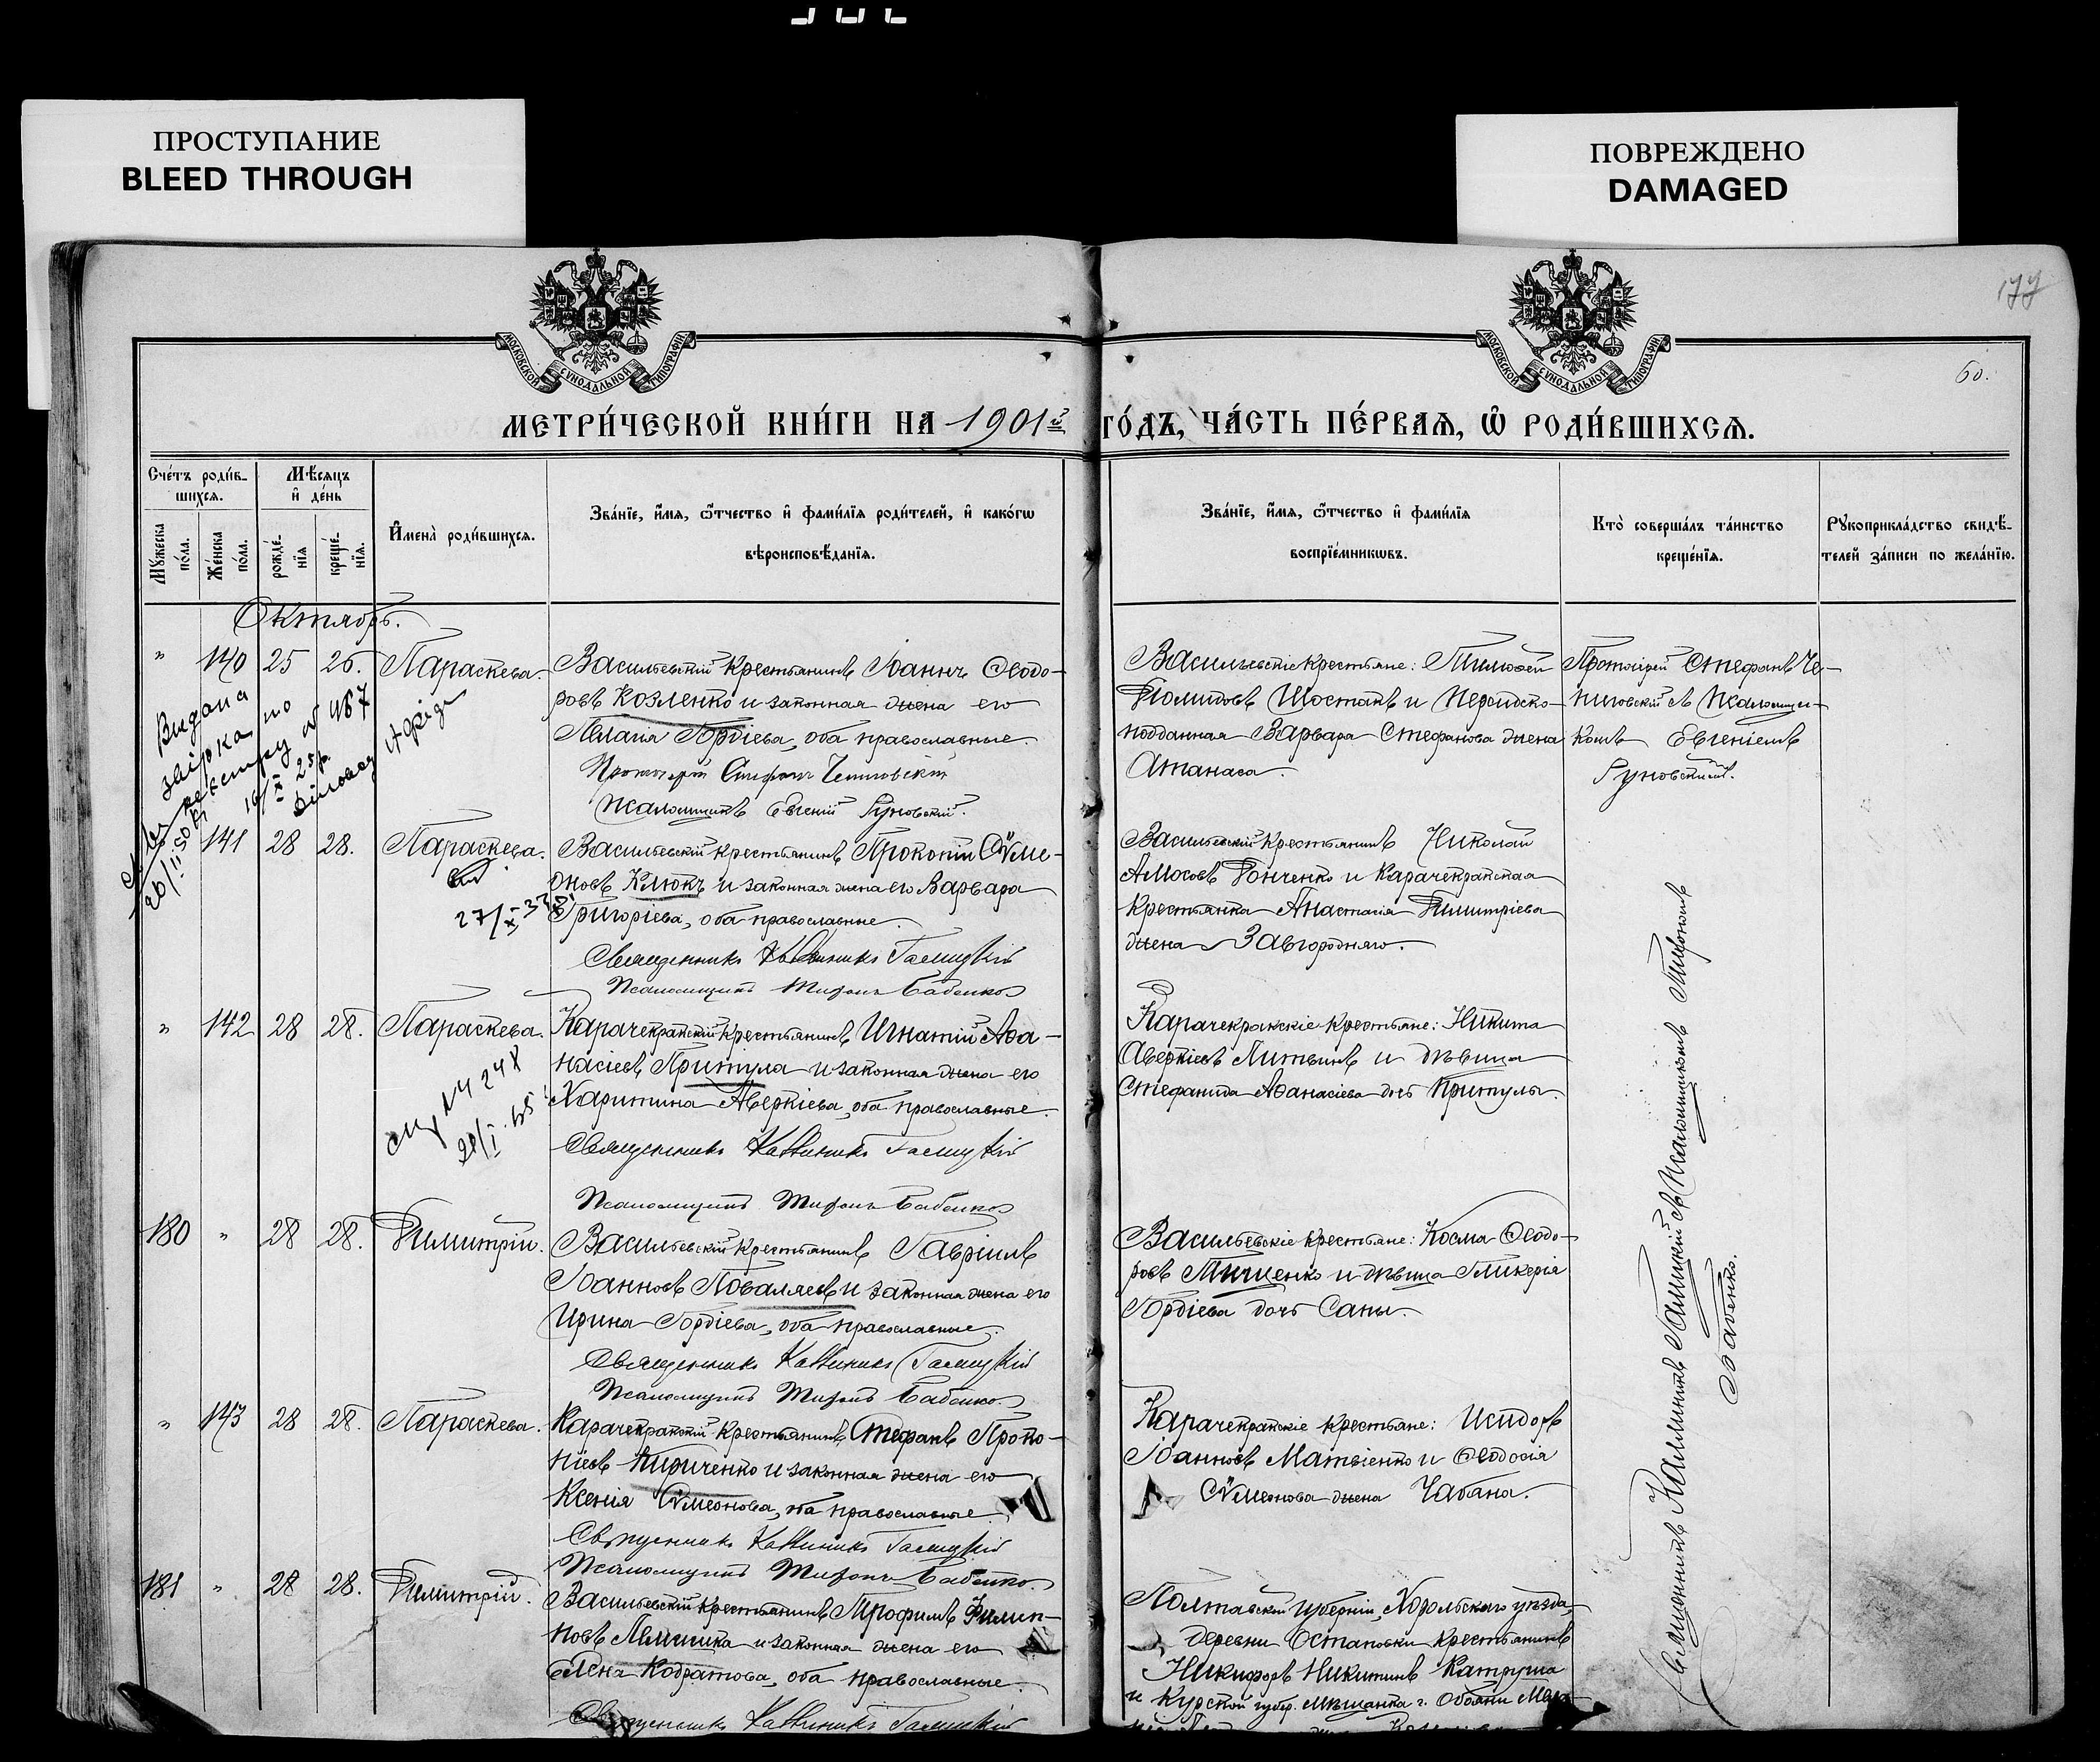 ПРОСТУПАНИЕ
BLEED THROUGH
ПОВРЕЖДЕНО
DAMAGED
177
60.
МОСКОВСКОЙ СѴНОДАЛЬНОЙ ТИПОГРАФІИ
МОСКОВСКОЙ СѴНОДАЛЬНОЙ ТИПОГРАФІИ
МЕТРИ́ЧЕСКОЙ КНИ́ГИ НА 1901й ГО́ДЪ, ЧА́СТЬ ПЕ́РВАЯ, Ѡ РОДИ́ВШИХСЯ.
Сче́тъ роди́в-
шихся.
Мѣ́сяцъ
и де́нь
Мꙋжеска по́ла.
Же́нска по́ла.
рожде́-
нїя
креще́-
нїя.
Имена̀ роди́вшихся.
Зва́нїе, и́мя, ѻ҆́тчество и фами́лїя роди́телей, и како́гѡ
вѣроисповѣ́данїя.
Зва́нїе, и́мя, ѻ҆́тчество и фами́лїя
воспрїе́мникѡвъ.
Кто̀ соверша́лъ та́инство
креще́нїя.
Рꙋкоприкла́дство свидѣ́-
телей за́писи по жела́нїю.
Октябрь.
" 140 25 26. Параскева.
Васильевскій крестьянинъ Іоаннъ Ѳеодо-
ровъ Козленко и законная жена его
Пелагія Гордіева, оба православные.
Протоіерей Стефанъ Чепиговскій
Псаломщикъ Евгеній Руновскій.
Васильевскіе крестьяне: Тимоѳей
Шостакъ и Персидско-
подданная Варвара Стефанова жена
Атанаса.
Протоіерей Стефанъ Че-
пиговскій съ Псаломщи-
комъ Евгеніемъ
Руновскимъ.
Видана
по
реєстру № 487
141 28 28. Параскева.
27/X-37
Васильевскій крестьянинъ Прокопій Сѵме-
оновъ Клюкъ и законная жена его Варвара
Григоріева, оба православные.
Священникъ Каллиникъ Галицкій
Псаломщикъ Миронъ Бабенко
Васильевскій крестьянинъ Николай
Амосовъ Гонченко и Карачекракская
крестьянка Анастасія Димитріева
жена Завгородняго.
" 142 28 28. Параскева.
Карачекракскій крестьянинъ Игнатій Аѳа-
насіевъ Притула и законная жена его
Харитина Аверкіева, оба православные.
Священникъ Каллиникъ Галицкій
Псаломщикъ Миронъ Бабенко
Карачекракскіе крестьяне: Никита
Аверкіевъ Литвинъ и дѣвица
Стефанида Аѳанасіева дочь Притулы.
180 " 28 28. Димитрій.
Васильевскій крестьянинъ Гавріилъ
Іоанновъ Поваляевъ и законная жена его
Ирина Гордіева, оба православные.
Священникъ Каллиникъ Галицкій
Псаломщикъ Миронъ Бабенко.
Васильевскіе крестьяне: Косма Ѳеодо-
ровъ Тищенко и дѣвица Гликерія
Гордіева дочь Саны.
" 143 28 28. Параскева.
Карачекракскій крестьянинъ Стефанъ Проко-
піевъ Кириченко и законная жена его
Ксенія Сѵмеонова, оба православные.
Священникъ Каллиникъ Галицкій
Псаломщикъ Миронъ Бабенко.
Карачекракскіе крестьяне: Исидоръ
Іоанновъ Матвіенко и Ѳеодосія
Сѵмеонова жена Чабана.
181 " 28 28. Димитрій.
Васильевскій крестьянинъ Трофимъ Филип-
повъ и законная жена его
Елена Кодратова, оба православные.
Священникъ Каллиникъ Галицкій
Полтавской губерніи, Хорольскаго уѣзда,
деревни Остаповки крестьянинъ
Никифоръ Никитинъ Катруша
и Курской губер. мѣщанка г. Обояни
Священникъ Каллиникъ Галицкій съ Псаломщикомъ Мирономъ
Бабенко.